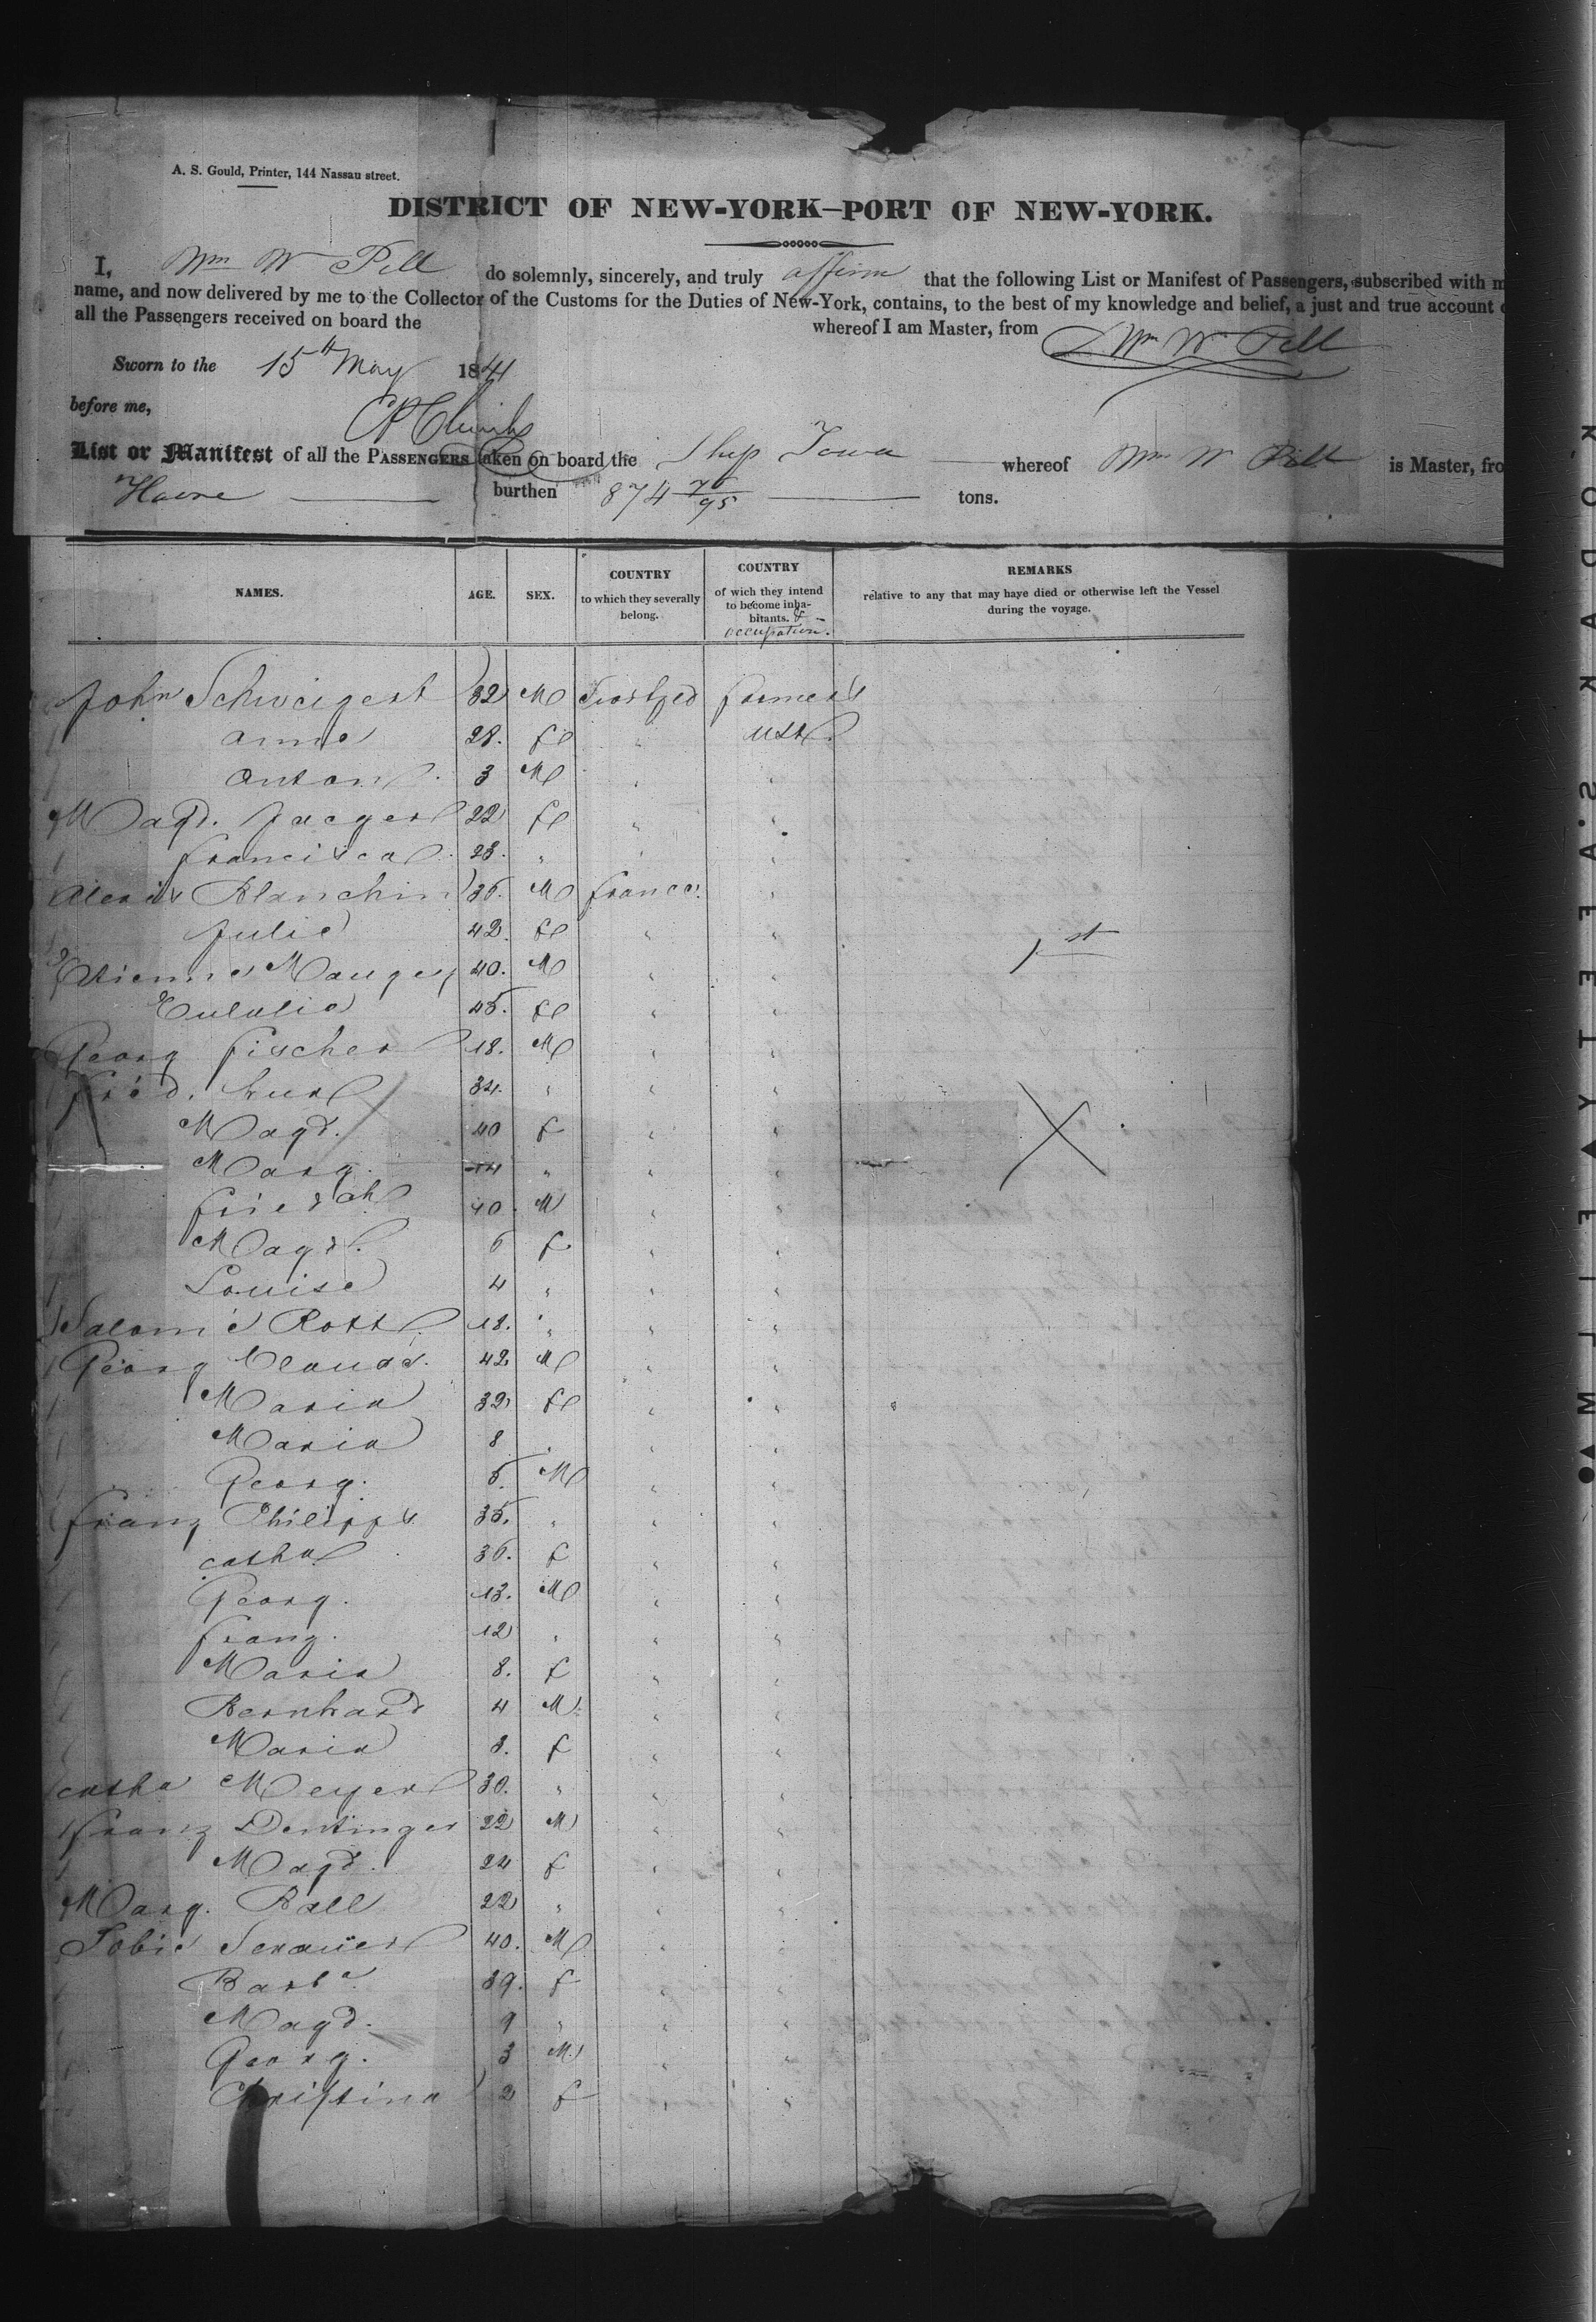 A. S. Gould, Printer, 144 Nassau street.
DISTRICT OF NEW-YORK—PORT OF NEW-YORK.
I, Wm W Pell do solemnly, sincerely, and truly affirm that the following List or Manifest of Passengers, subscribed with m
name, and now delivered by me to the Collector of the Customs for the Duties of New-York, contains, to the best of my knowledge and belief, a just and true account
all the Passengers received on board the whereof I am Master, from
Wm W Pell
Sworn to the 15th May 1841
before me,
List or Manifest of all the PASSENGERS taken on board the Ship Iowa whereof Wm W Pell is Master, fro
Havre burthen 874 76/95 tons.
NAMES. AGE. SEX. COUNTRY to which they severally belong. COUNTRY of wich they intend to become inhabitants. & occupation. REMARKS relative to any that may have died or otherwise left the Vessel during the voyage.
John Schweigert 32 M farmers
Anne 28. fe USt.
Anton 3 M
Magd. Jaeger 22 fe
Francisca 23. "
Alexis Blanchin 36. M France
Julie 42. fe
1st
Etienne Maugey 40. M
Eulalie 45. fe
Georg Fischer 18. M
Fréd. 34. "
Magd. 40 f
X
Marg. 14 "
Friedch 10. M
Magd. 6 f
Louise 4 "
Salomé Rott 18. "
Georg Claude. 42 M
Maria 32 fe
Maria 8 "
Georg. 5. M
Franz Philipps 35. "
Catha 36. f
Georg. 13. M
Franz. 12 "
Maria 8. f
Bernhard 4 M
Maria 3. f
Catha Meyer 30. "
Franz Dentinger 22 M
Magd. 24 f
Marg. Ball 22 "
Tobie 40. M
Barba 39. f
Magd. 9 "
Georg. 3 M
Christina 2 f
KODAK S.AFETY FILM